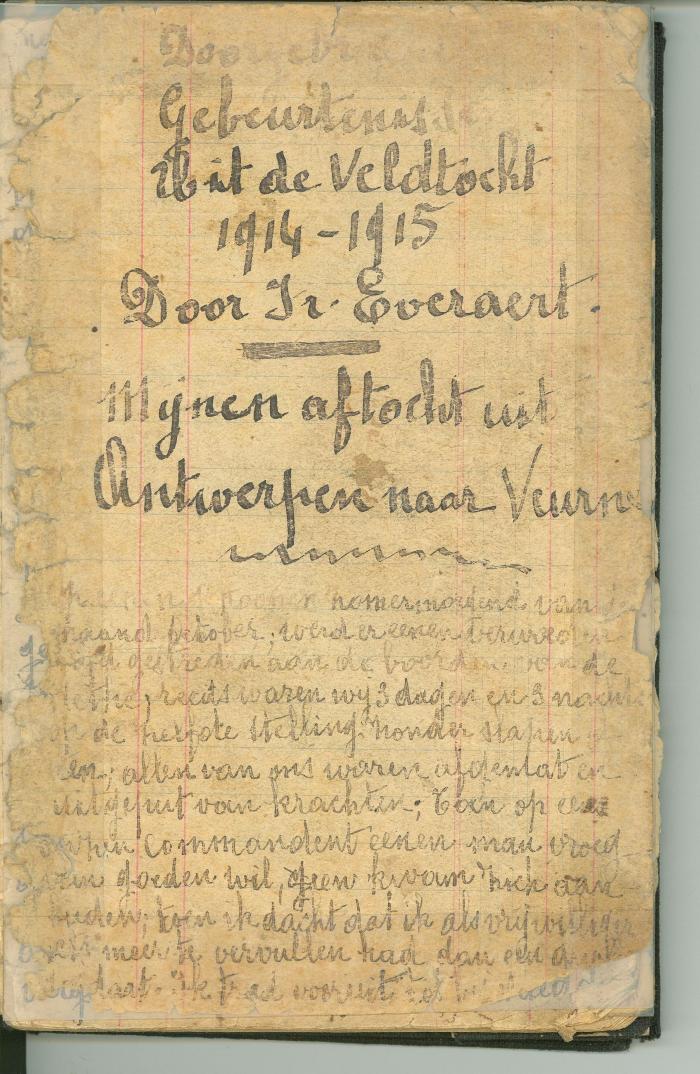 Gebeurtenis
Uit de Veldtocht
1914-1915
Door Jr. Everaert.
Mijnen aftocht uit
Antwerpen naar Veurne
zomermorgend van
maand october; werd er eenen verwoeden
gestreden aan de boorden van de
reeds waren wij 3 dagen en 3 nachts
op de zelfde stelling zonder slapen
en; allen van ons waren afgemat en
uitgeput van krachten; Toen op eens
commandent eenen man vroeg
van goeden wil, geen kwam zich aan
bieden; toen ik dacht dat ik als vrijwilliger
meer te vervullen had dan een
Ik trad vooruit